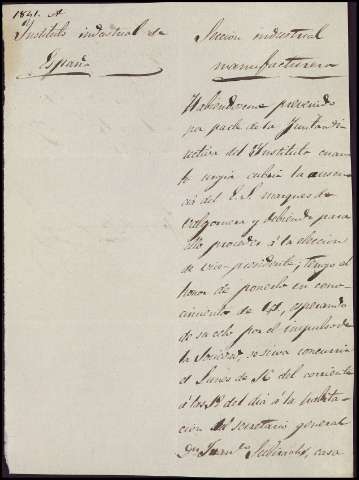 1841. A
Instituto industrial de
España
Sección industrial
manufacturera
Habiendoseme prevenido
por parte de la Junta di
rectiva del Instituto cuan
to urgia cubrir la ausen
cia del E. S. marques de
Valgornera y debiendo para
ello proceder á la eleccion
de vice-presidente, tengo el
honor de ponerlo en cono
cimiento de V., esperando
de su celo por el impulso de
la Sociedad, se sirva concurrir
el Lunes de del corriente
á las del dia á la habita
cion del secretario general
Dn Juan casa